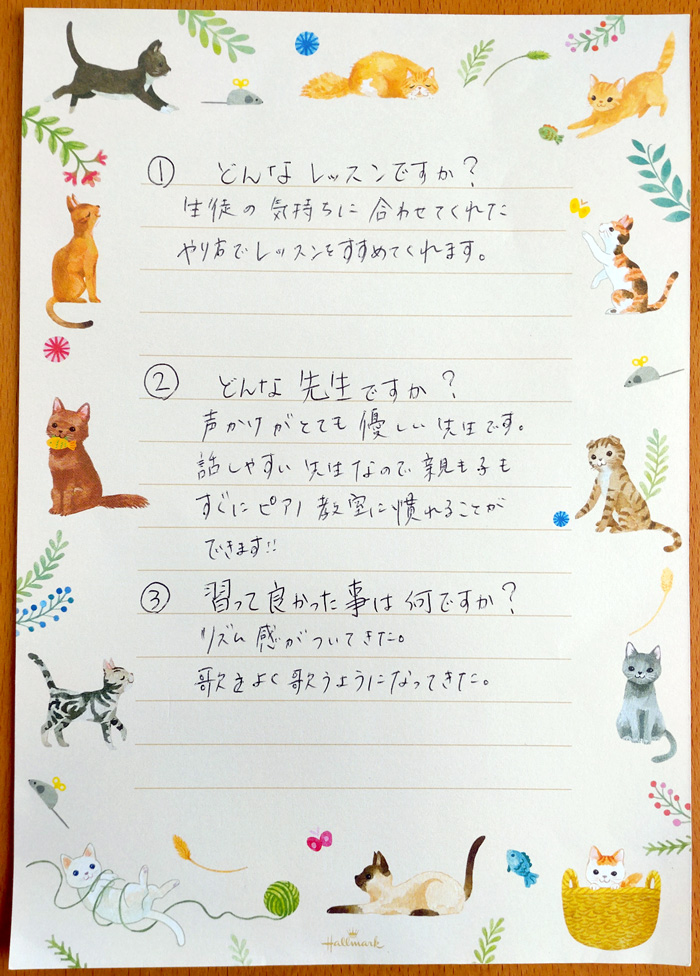 ① どんなレッスンですか？
生徒の気持ちに合わせてくれた
やり方でレッスンをすすめてくれます。
② どんな先生ですか？
声かけがとても優しい先生です。
話しやすい先生なので親も子も
すぐにピアノ教室に慣れることが
できます!!
③ 習って良かった事は何ですか？
リズム感がついてきた。
歌をよく歌うようになってきた。
Hallmark